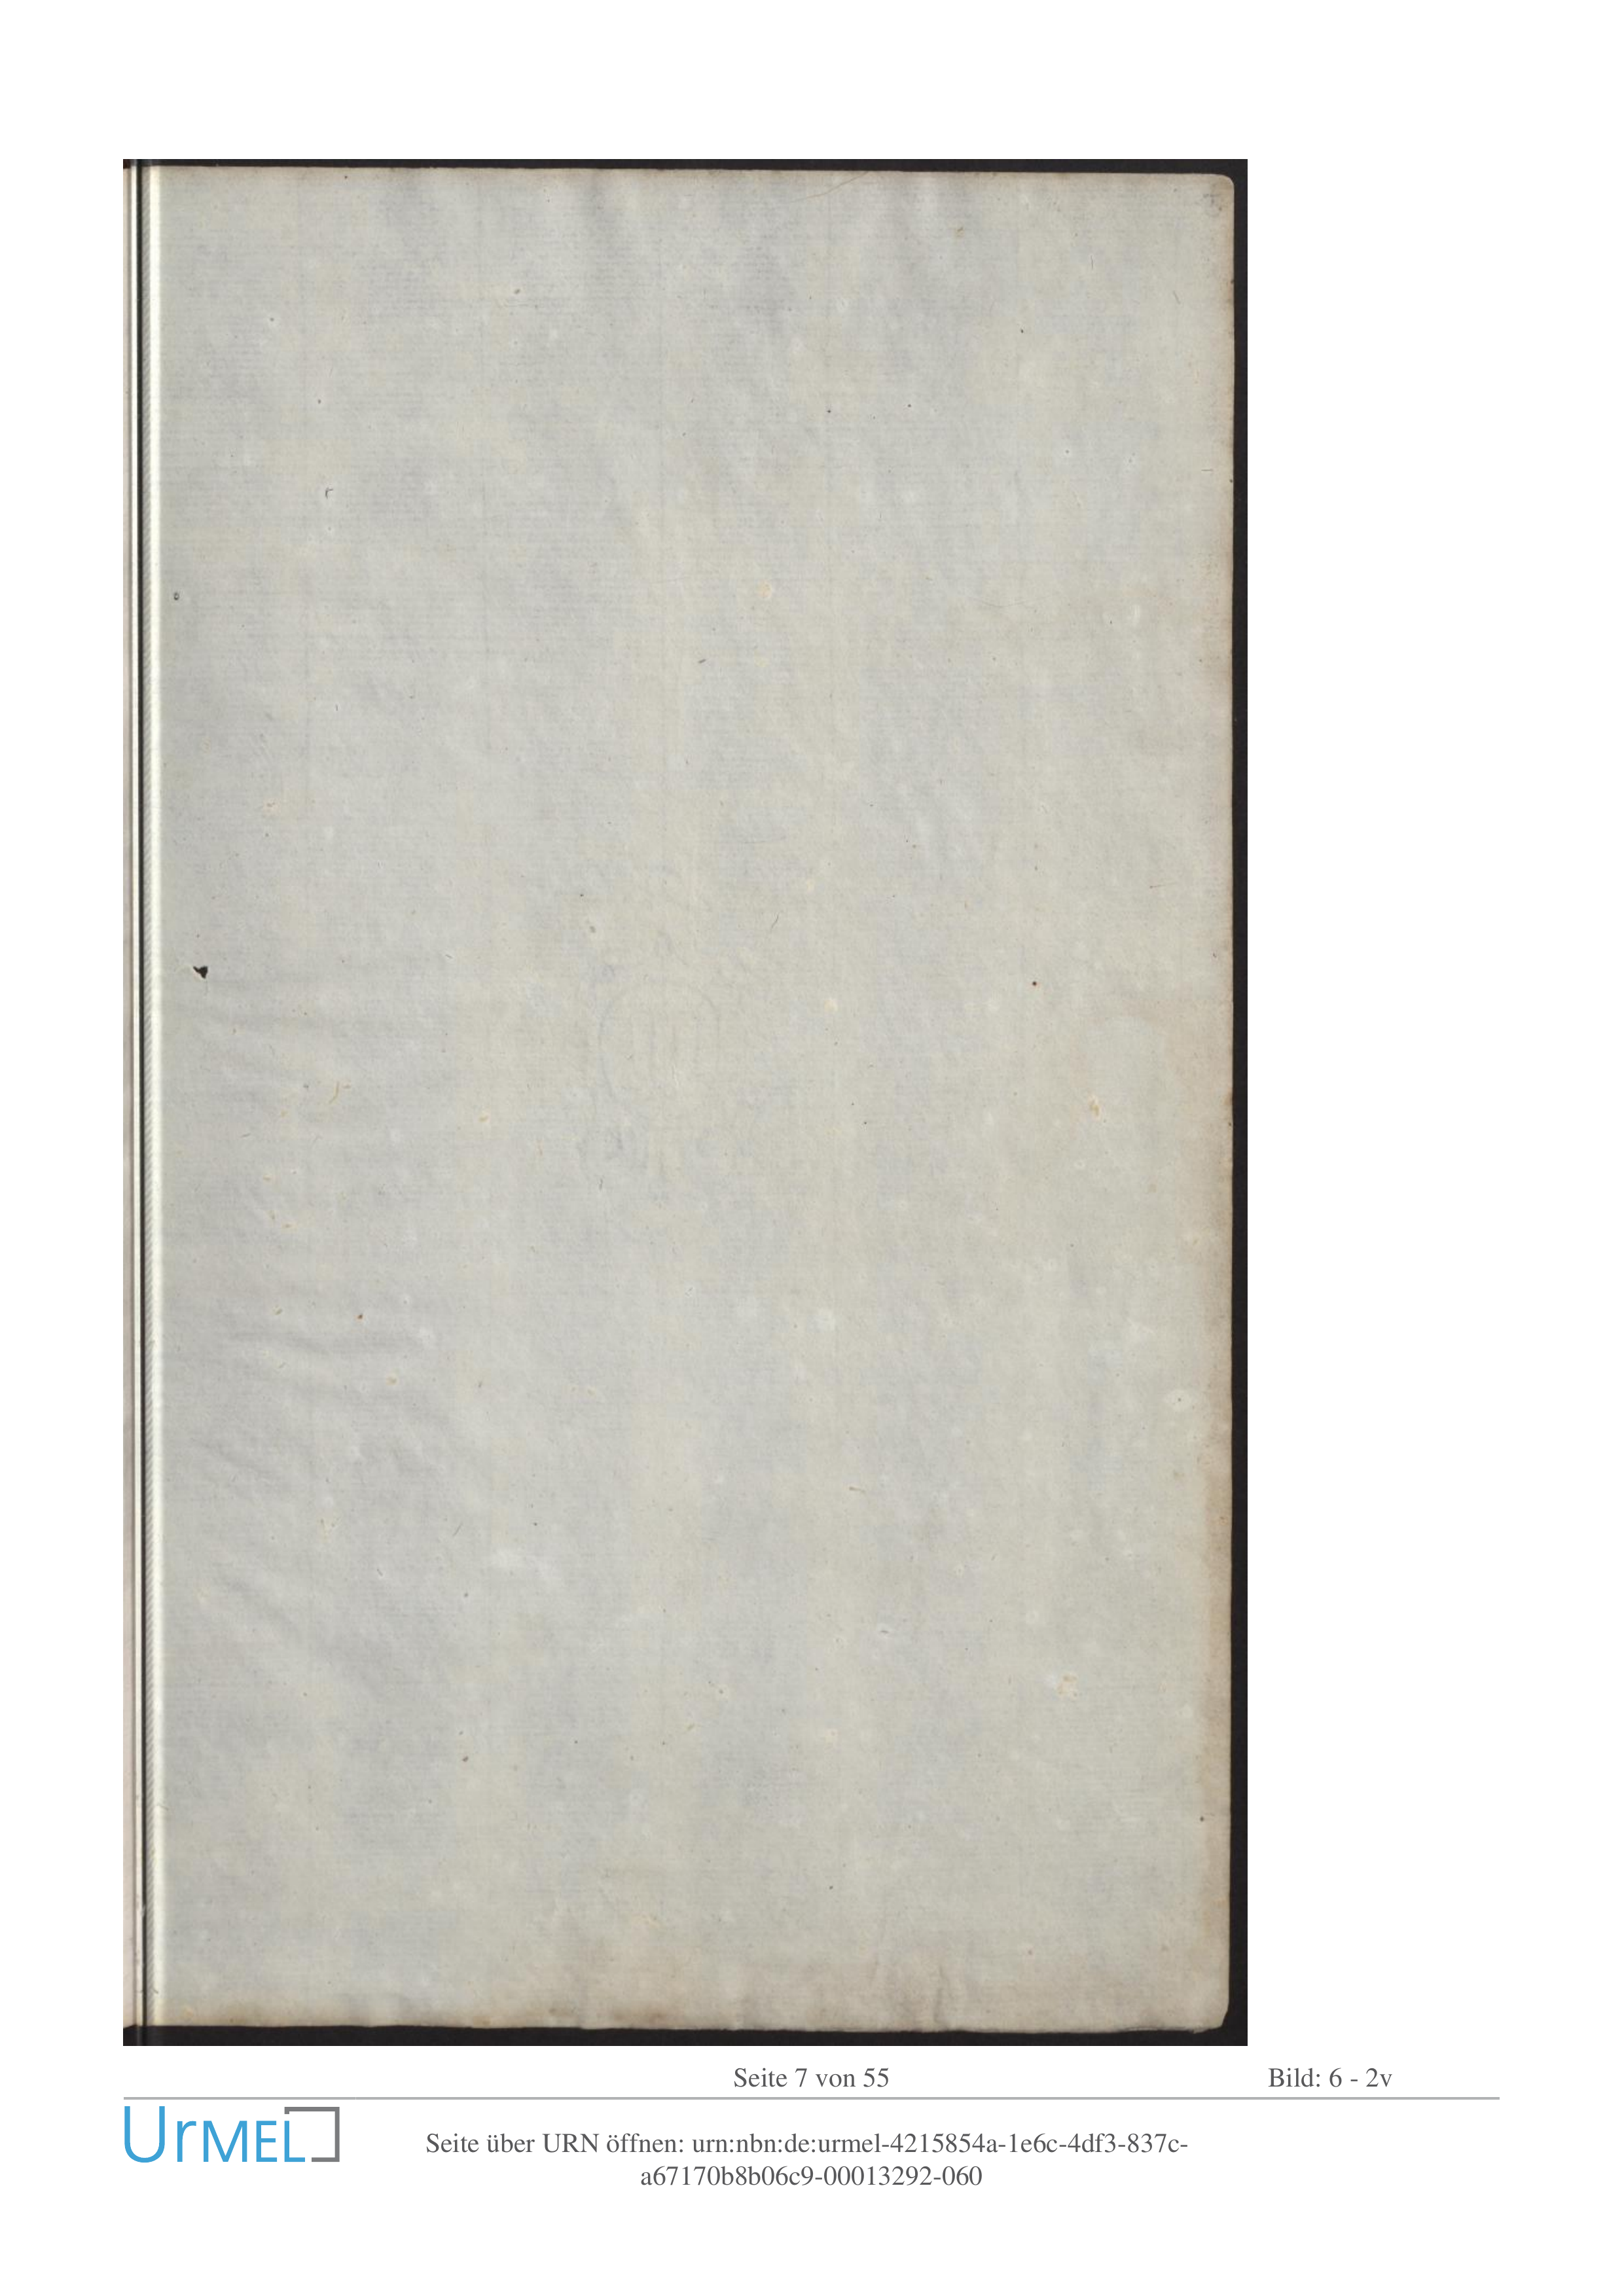 Seite 7 von 55
Bild: 6 - 2v
UrMEL
Seite über URN öffnen: urn:nbn:de:urmel-4215854a-1e6c-4df3-837c-
a67170b8b06c9-00013292-060